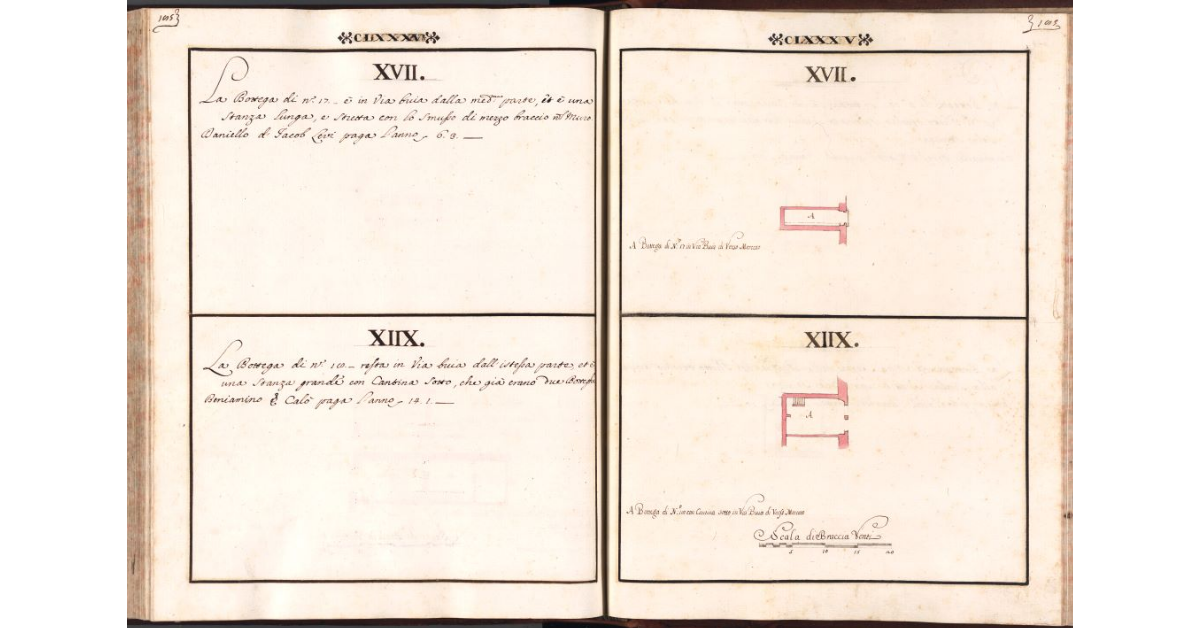 CLXXXV
XVII.
La Bottega di n.º 17. è in Via buia dalla med.ª parte, et è una
Stanza lunga, e stretta con lo Smusso di mezzo braccio Muro
Daniello d. Jacob Levi paga l'anno 6. 3.
XIIX.
La Bottega di n.º 18. resta in Via buia dall'istessa parte, et è
una Stanza grande con Cantina Sotto, che già erano due Botteghe
Beniamino Calò paga l'anno 14. 1.
CLXXXV
XVII.
A
A Bottega di N.º 17 in Via Buia di Verso Mercato
XIIX.
A
A Bottega di N.º con Cantina sotto in Via Buia di Verso Mercato
Scala di Braccia Venti
5 10 15 20